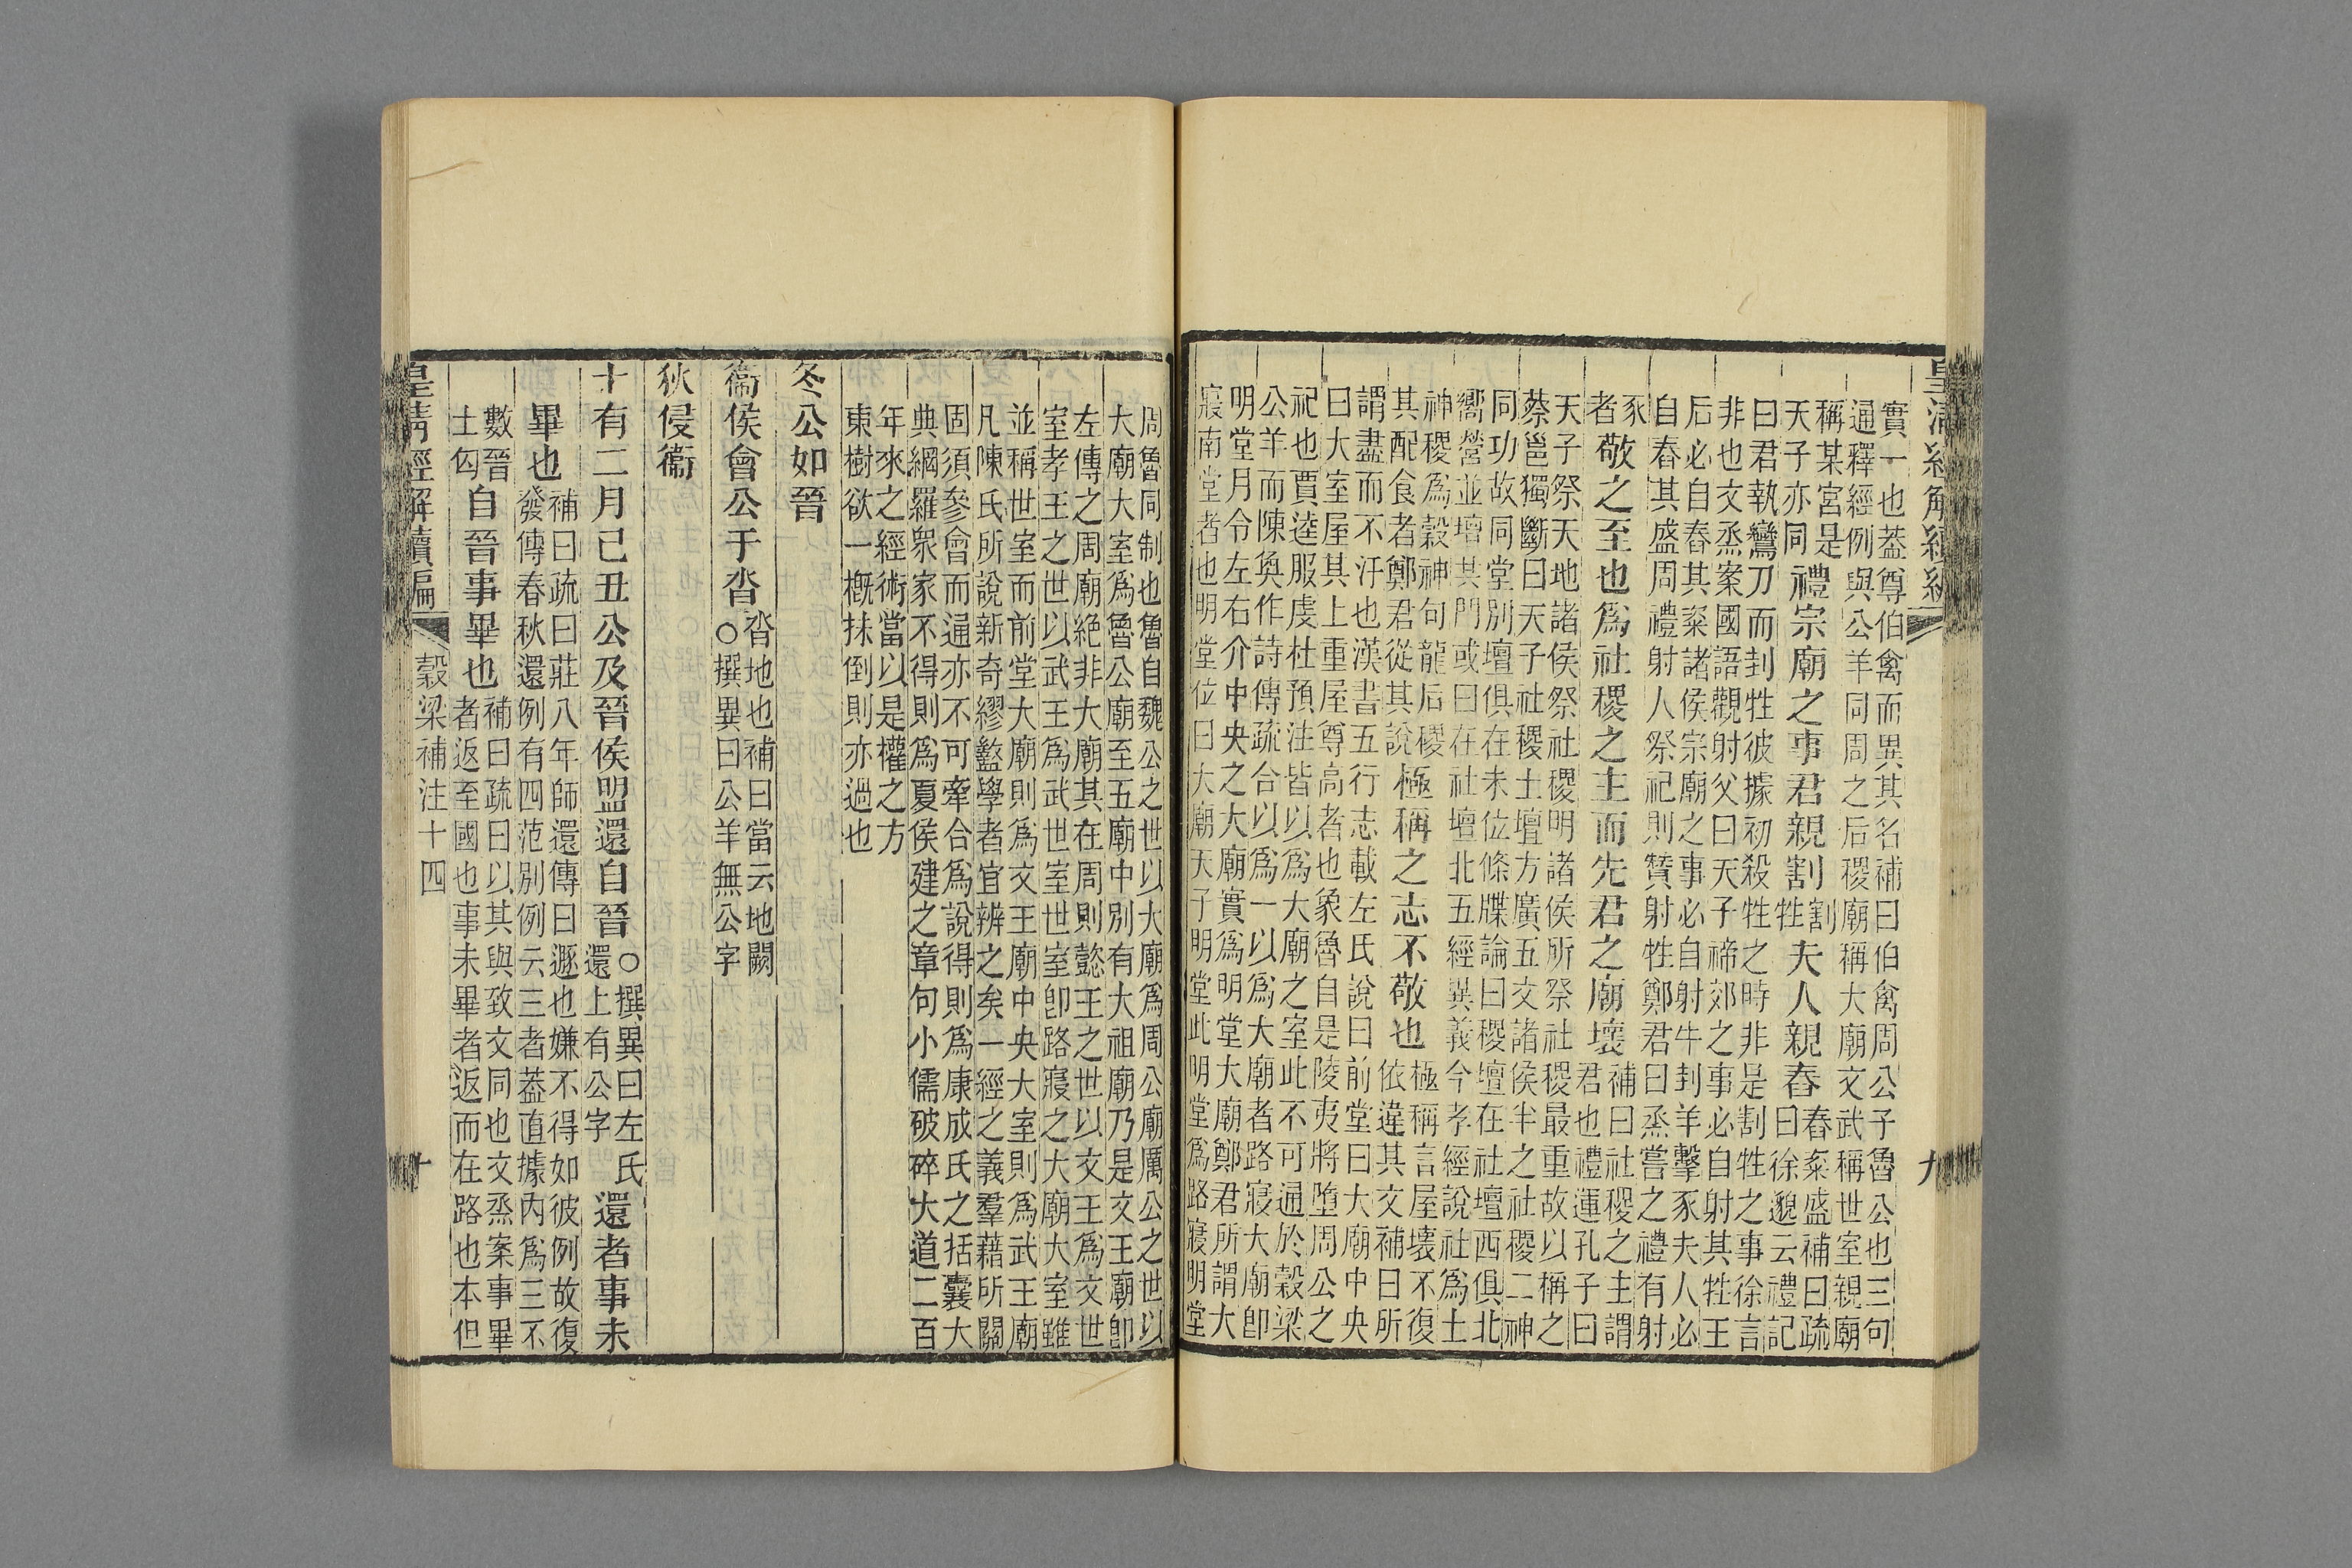 皇清經解續編
九
實一也葢尊伯禽而異其名補曰伯禽周公子魯公也三句
通釋經例與公羊同周之后稷廟稱大廟文武稱世室親廟
稱某宮是
天子亦同
禮宗廟之事君親割
割
牲
夫人親舂
舂粢盛補曰疏
曰徐邈云禮記
曰君執鸞刀而刲牲彼據初殺牲之時非是割牲之事徐言
非也文烝案國語觀射父曰天子禘郊之事必自射其牲王
后必自舂其粢諸侯宗廟之事必自射牛刲羊擊豕夫人必
自舂其盛周禮射人祭祀則贊射牲鄭君曰烝嘗之禮有射
豕
者
敬之至也爲社稷之主而先君之廟壞
補曰社稷之主謂
君也禮運孔子曰
天子祭天地諸侯祭社稷明諸侯所祭社稷最重故以稱之
蔡邕獨斷曰天子社稷土壇方廣五丈諸侯半之社稷二神
同功故同堂別壇俱在未位條牒論曰稷壇在社壇西俱北
嚮營並壇其門或曰在社壇北五經異義今孝經說社爲土
神稷爲穀神句龍后稷
其配食者鄭君從其說
極稱之志不敬也
極稱言屋壞不復
依違其文補曰所
謂盡而不汙也漢書五行志載左氏說曰前堂曰大廟中央
曰大室屋其上重屋尊高者也象魯自是陵夷將墮周公之
祀也賈逵服虔杜預注皆以爲大廟之室此不可通於穀梁
公羊而陳奐作詩傳疏合以爲一以爲大廟者路寢大廟卽
明堂月令左右介中央之大廟實爲明堂大廟鄭君所謂大
寢南堂者也明堂位曰大廟天子明堂此明堂爲路寢明堂
周魯同制也魯自魏公之世以大廟爲周公廟厲公之世以
大廟大室爲魯公廟至五廟中別有大祖廟乃是文王廟卽
左傳之周廟絶非大廟其在周則懿王之世以文王爲文世
室孝王之世以武王爲武世室世室卽路寢之大廟大室雖
並稱世室而前堂大廟則爲文王廟中央大室則爲武王廟
凡陳氏所說新奇繆盭學者宜辨之矣一經之義羣藉所關
固須參會而通亦不可牽合爲說得則爲康成氏之括囊大
典網羅衆家不得則爲夏侯建之章句小儒破碎大道二百
年來之經術當以是權之方
東樹欲一概抹倒則亦過也
冬公如晉
衞侯會公于沓
沓地也補曰當云地闕
○撰異曰公羊無公字
狄侵衞
十有二月己丑公及晉侯盟還自晉
○撰異曰左氏
還上有公字
還者事未
畢也
補曰疏曰莊八年師還傳曰遯也嫌不得如彼例故復
發傳春秋還例有四范別例云三者葢直據內爲三不
數晉
士匄
自晉事畢也
補曰疏曰以其與致文同也文烝案事畢
者返至國也事未畢者返而在路也本但
皇清經解續編
穀梁補注十四
十